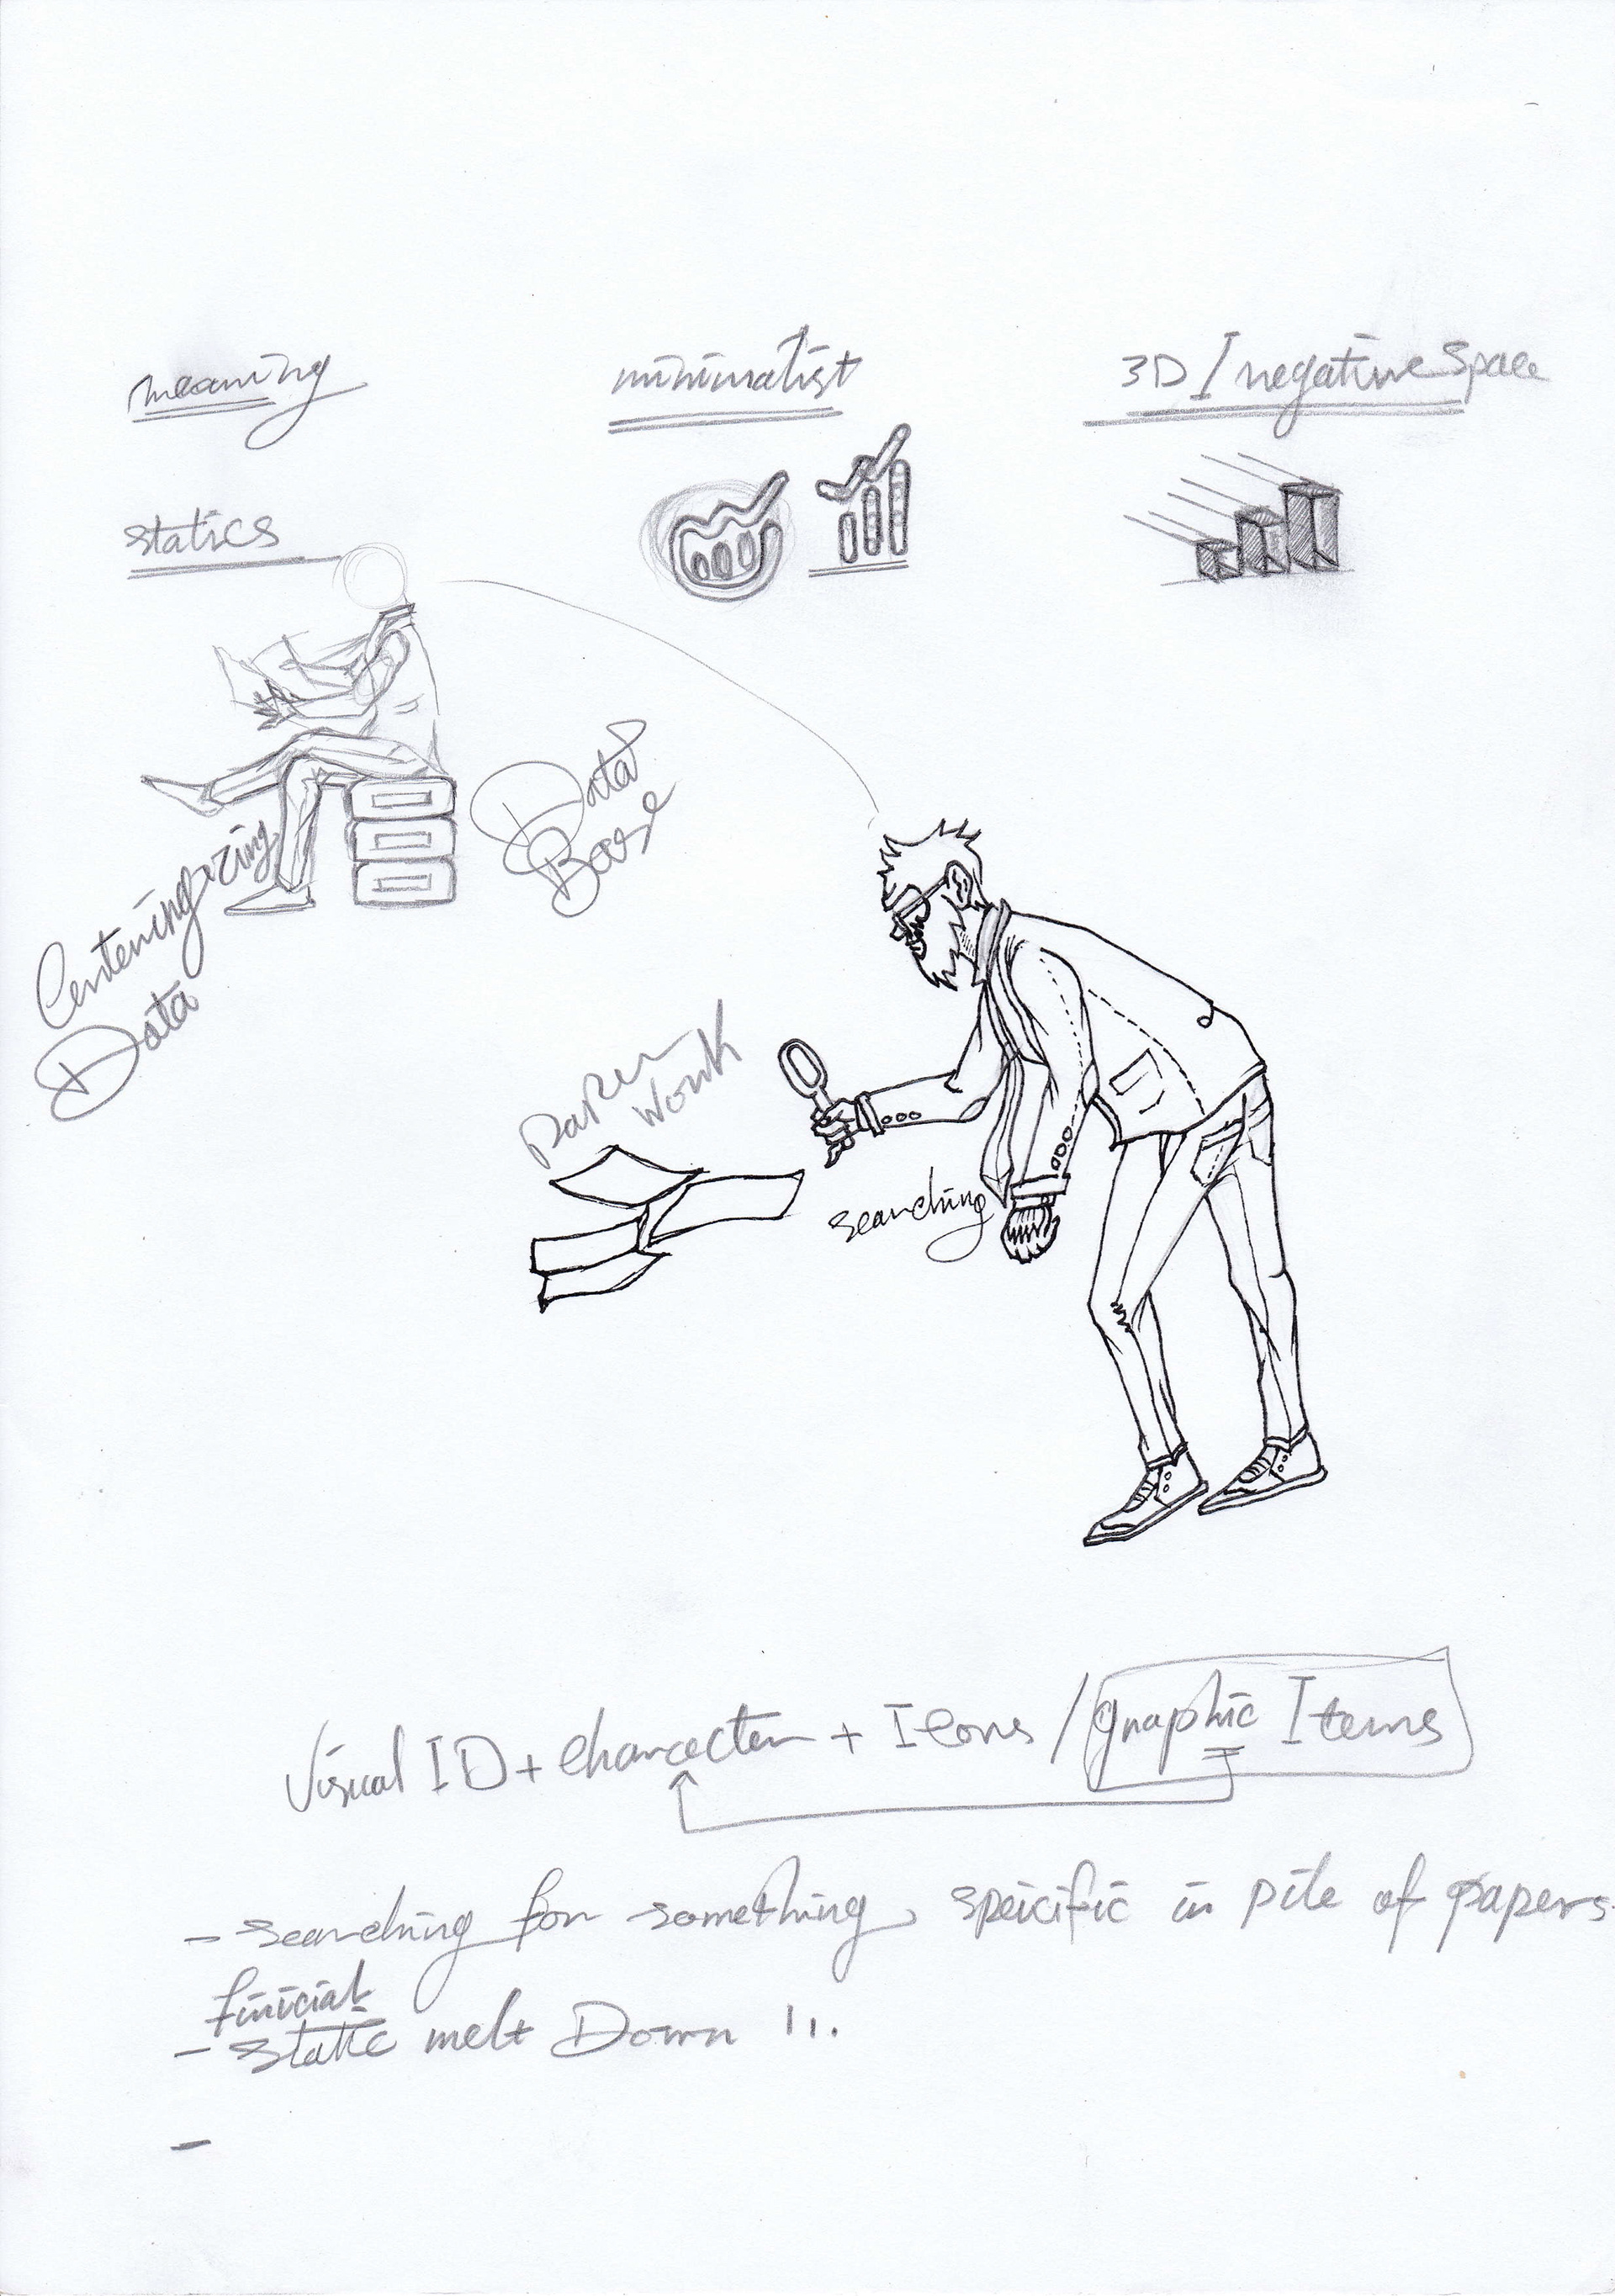 meaning
minimalist
3D / negative space
statics
Data
Base
Centering
Data
paper
work
searching
Visual ID + character + Icons / graphic Items
- searching for something, speicific in pile of papers.
finicial
- static melt Down !!.
-